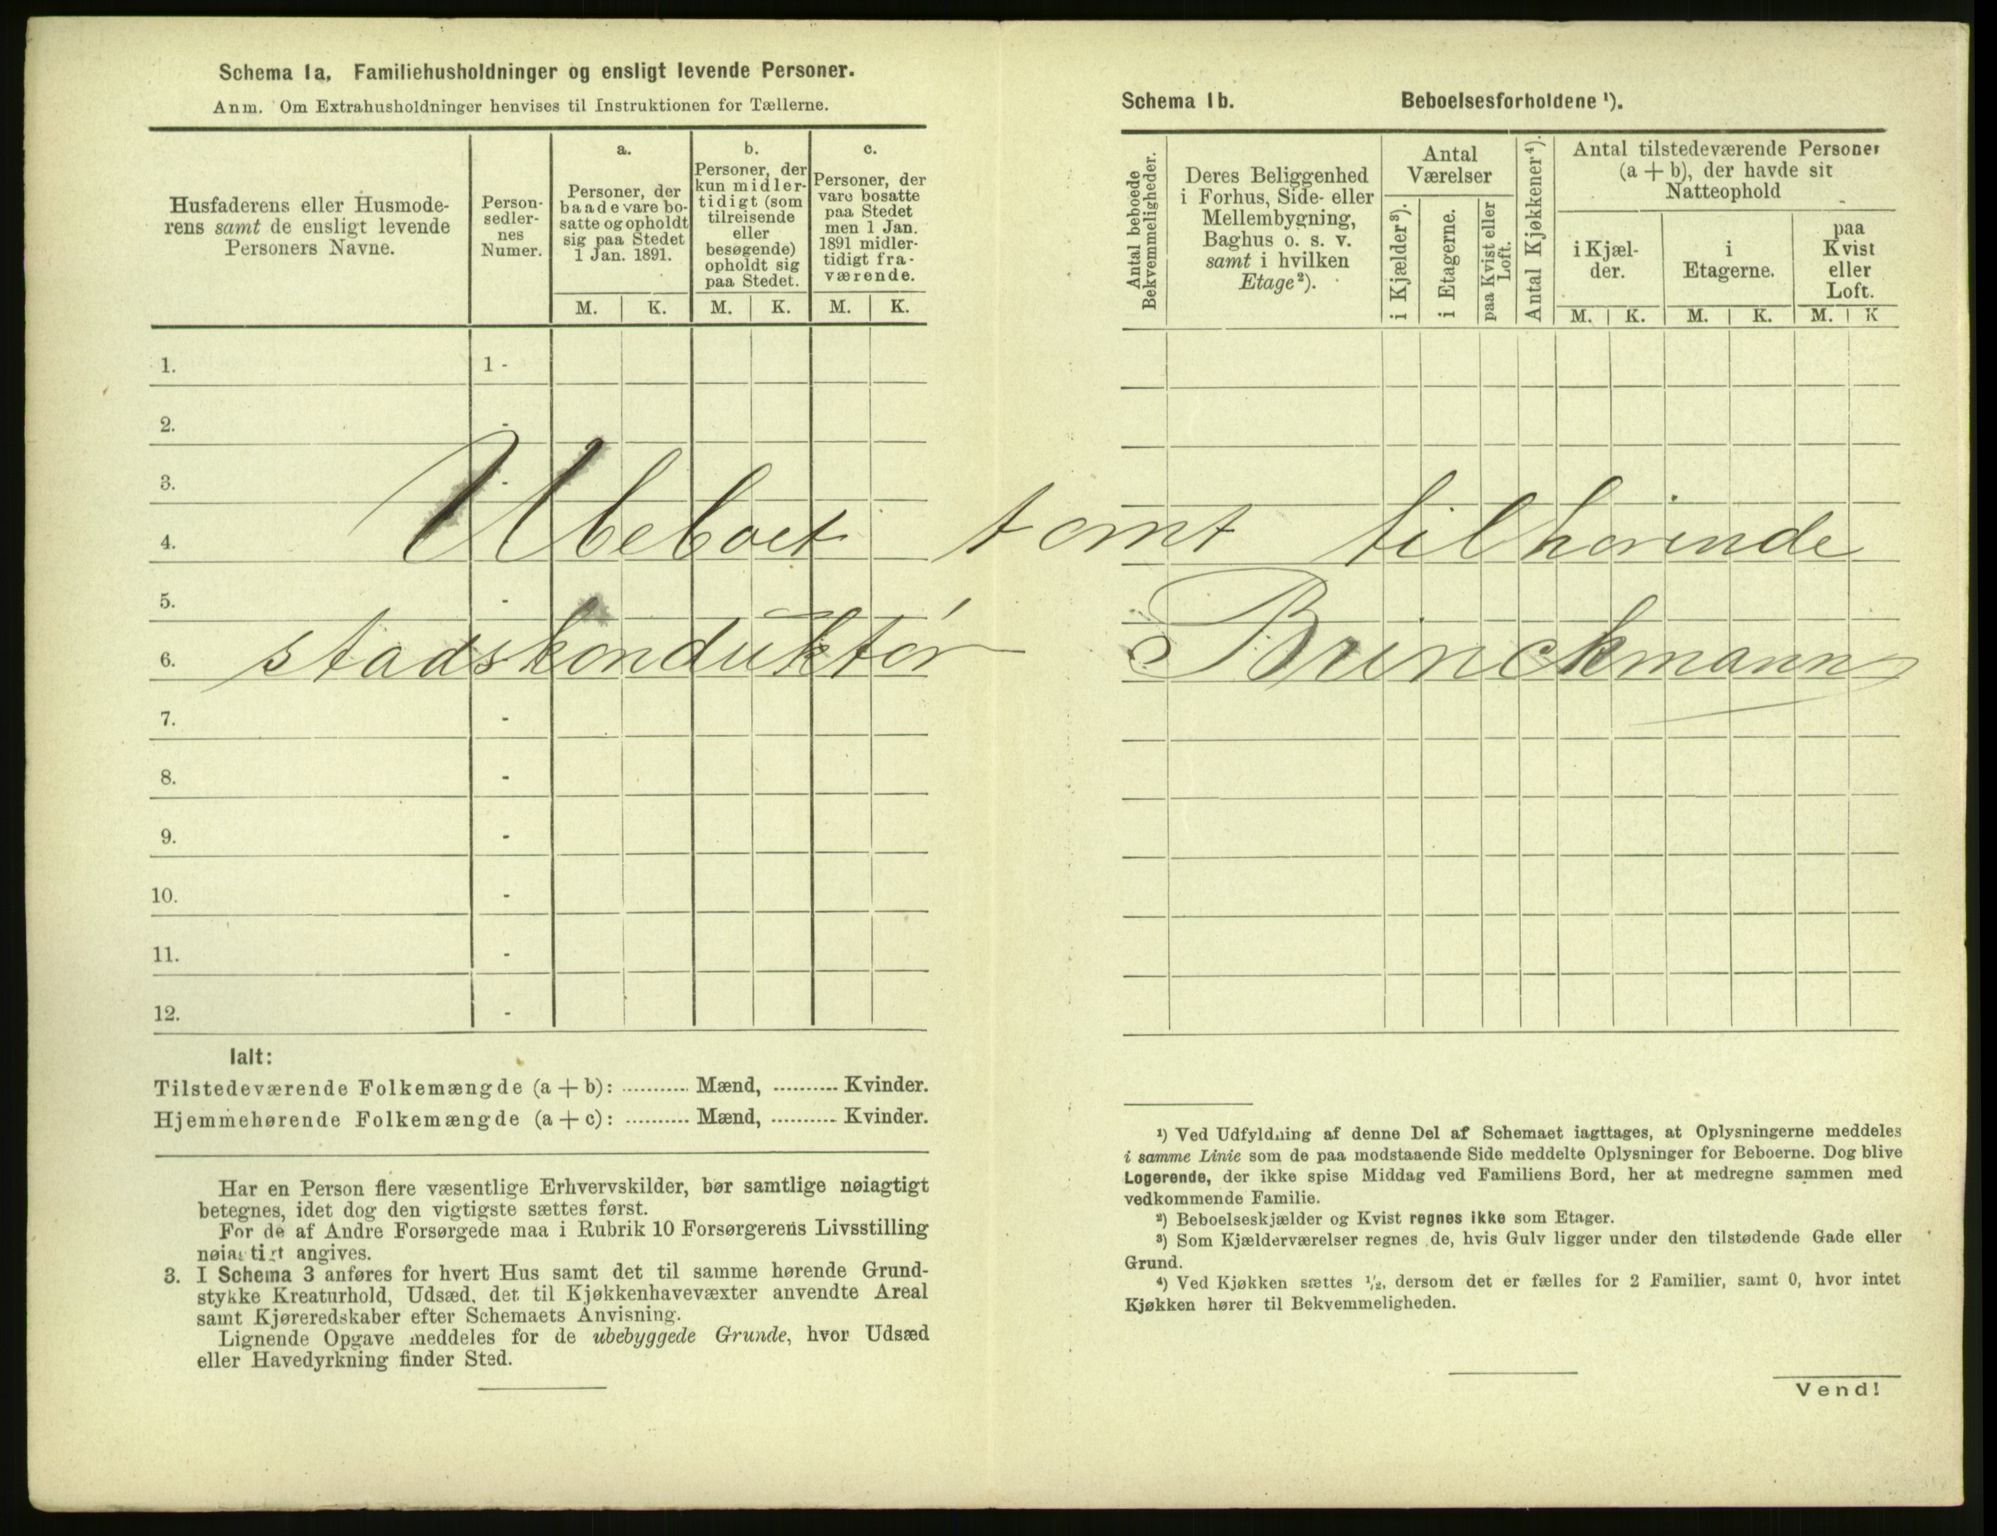 Schema 1a. Familiehusholdninger og ensligt levende Personer.
Anm. Om Extrahusholdninger henvises til Instruktionen for Tællerne.
Husfaderens eller Husmode-
rens samt de ensligt levende
Personers Navne.
Person-
sedler-
nes
Numer.
a.
Personer, der
baade vare bo-
satte og opholdt
sig paa Stedet
1 Jan. 1891.
b.
Personer, der
kun midler-
tidigt (som
tilreisende
eller
besøgende)
opholdt sig
paa Stedet.
c.
Personer, der
vare bosatte
paa Stedet
men 1 Jan.
1891 midler-
tidigt fra-
værende.
M. K. M. K. M. K.
1. 1 -
2. -
3. -
4.
5. -
6.
7. -
8. -
9. -
10. -
11. -
12. -
Ubeboet tomt tilhørende
stadskonduktør Brinckmann
Ialt:
Tilstedeværende Folkemængde (a + b): .......... Mænd, .......... Kvinder.
Hjemmehørende Folkemængde (a + c): .......... Mænd, .......... Kvinder.
Har en Person flere væsentlige Erhvervskilder, bør samtlige nøiagtigt
betegnes, idet dog den vigtigste sættes først.
For de af Andre Forsørgede maa i Rubrik 10 Forsørgerens Livsstilling
nøiagtigt angives.
3. I Schema 3 anføres for hvert Hus samt det til samme hørende Grund-
stykke Kreaturhold, Udsæd, det til Kjøkkenhavevæxter anvendte Areal
samt Kjøreredskaber efter Schemaets Anvisning.
Lignende Opgave meddeles for de ubebyggede Grunde, hvor Udsæd
eller Havedyrkning finder Sted.
Schema 1b. Beboelsesforholdene ¹).
Antal beboede
Bekvemmeligheder.
Deres Beliggenhed
i Forhus, Side- eller
Mellembygning,
Baghus o. s. v.
samt i hvilken
Etage²).
Antal
Værelser
i Kjælder³).
i Etagerne.
paa Kvist eller
Loft.
Antal Kjøkkener⁴).
Antal tilstedeværende Personer
(a + b), der havde sit
Natteophold
i Kjæl-
der.
i
Etagerne.
paa
Kvist
eller
Loft.
M. K. M. K. M. K
¹) Ved Udfyldning af denne Del af Schemaet iagttages, at Oplysningerne meddeles
i samme Linie som de paa modstaaende Side meddelte Oplysninger for Beboerne. Dog blive
Logerende, der ikke spise Middag ved Familiens Bord, her at medregne sammen med
vedkommende Familie.
²) Beboelseskjælder og Kvist regnes ikke som Etager.
³) Som Kjælderværelser regnes de, hvis Gulv ligger under den tilstødende Gade eller
Grund.
⁴) Ved Kjøkken sættes ½, dersom det er fælles for 2 Familier, samt 0, hvor intet
Kjøkken hører til Bekvemmeligheden.
Vend!